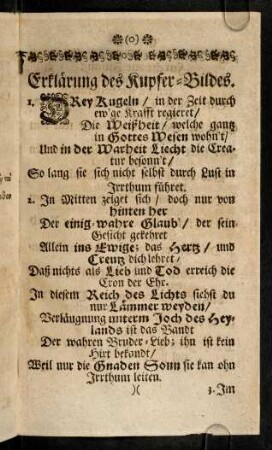 (o)
Erklärung des Kupfer-Bildes.
1. DRey Kugeln / in der Zeit durch
ew'ge Krafft regieret /
Die Weißheit / welche gantz
in Gottes Wesen wohn't /
Und in der Warheit Liecht die Crea-
tur besonn't /
So lang sie sich nicht selbst durch Lust in
Irrthum führet.
2. In Mitten zeiget sich / doch nur von
hinten her
Der einig-wahre Glaub / der sein
Gesicht gekehret
Allein ins Ewige; das Hertz / und
Creutz dich lehret /
Daß nichts als Lieb und Tod erreich die
Cron der Ehr.
In diesem Reich des Lichts siehst du
nur Lämmer weyden /
Verläugnung unterm Joch des Hey-
lands ist das Bandt
Der wahren Bruder-Lieb; ihn ist kein
Hirt bekandt /
Weil nur die Gnaden Sonn sie kan ohn
Irrthum leiten.
)( 3. Im